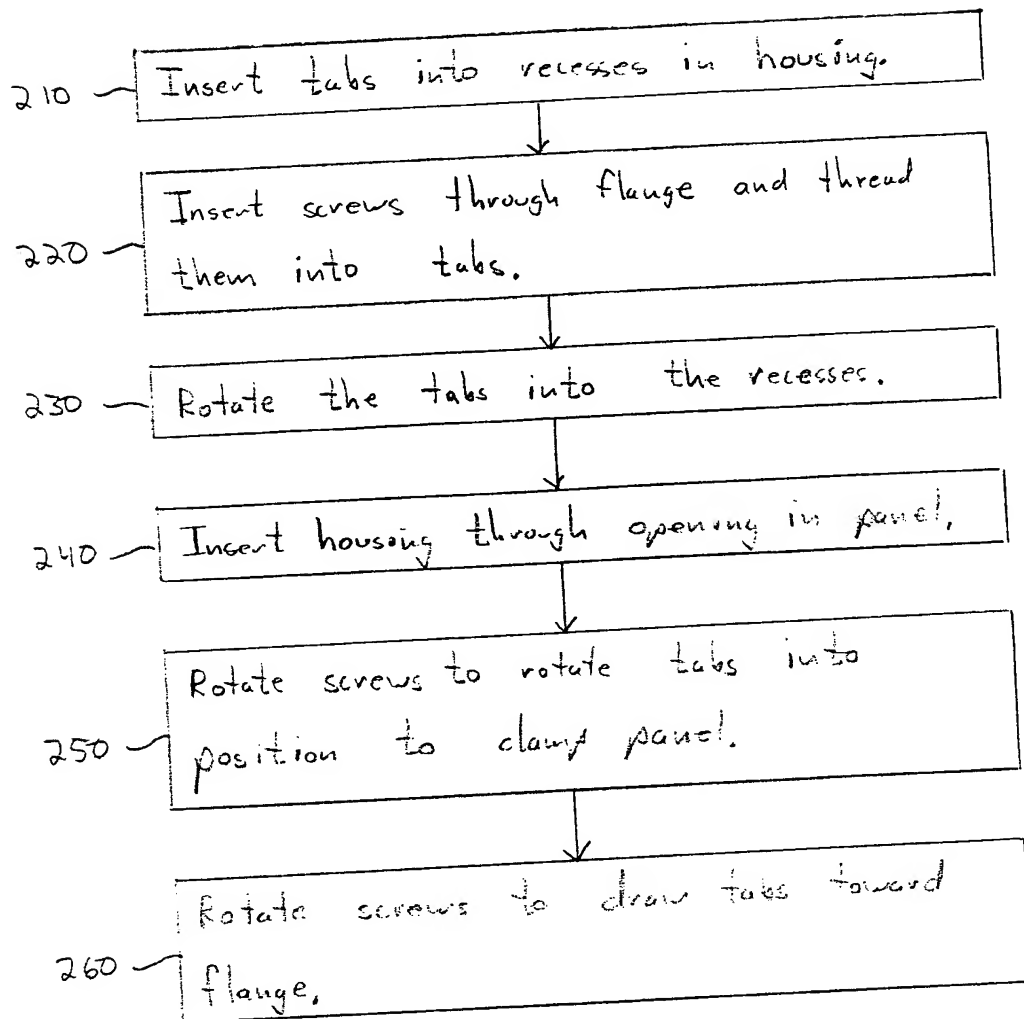 210 Insert tabs into recesses in housing.
220 Insert screws through flange and thread
them into tabs.
230 Rotate the tabs into the recesses.
240 Insert housing through opening in panel.
250 Rotate screws to rotate tabs into
position to clamp panel.
260 Rotate screws to draw tabs toward
flange.